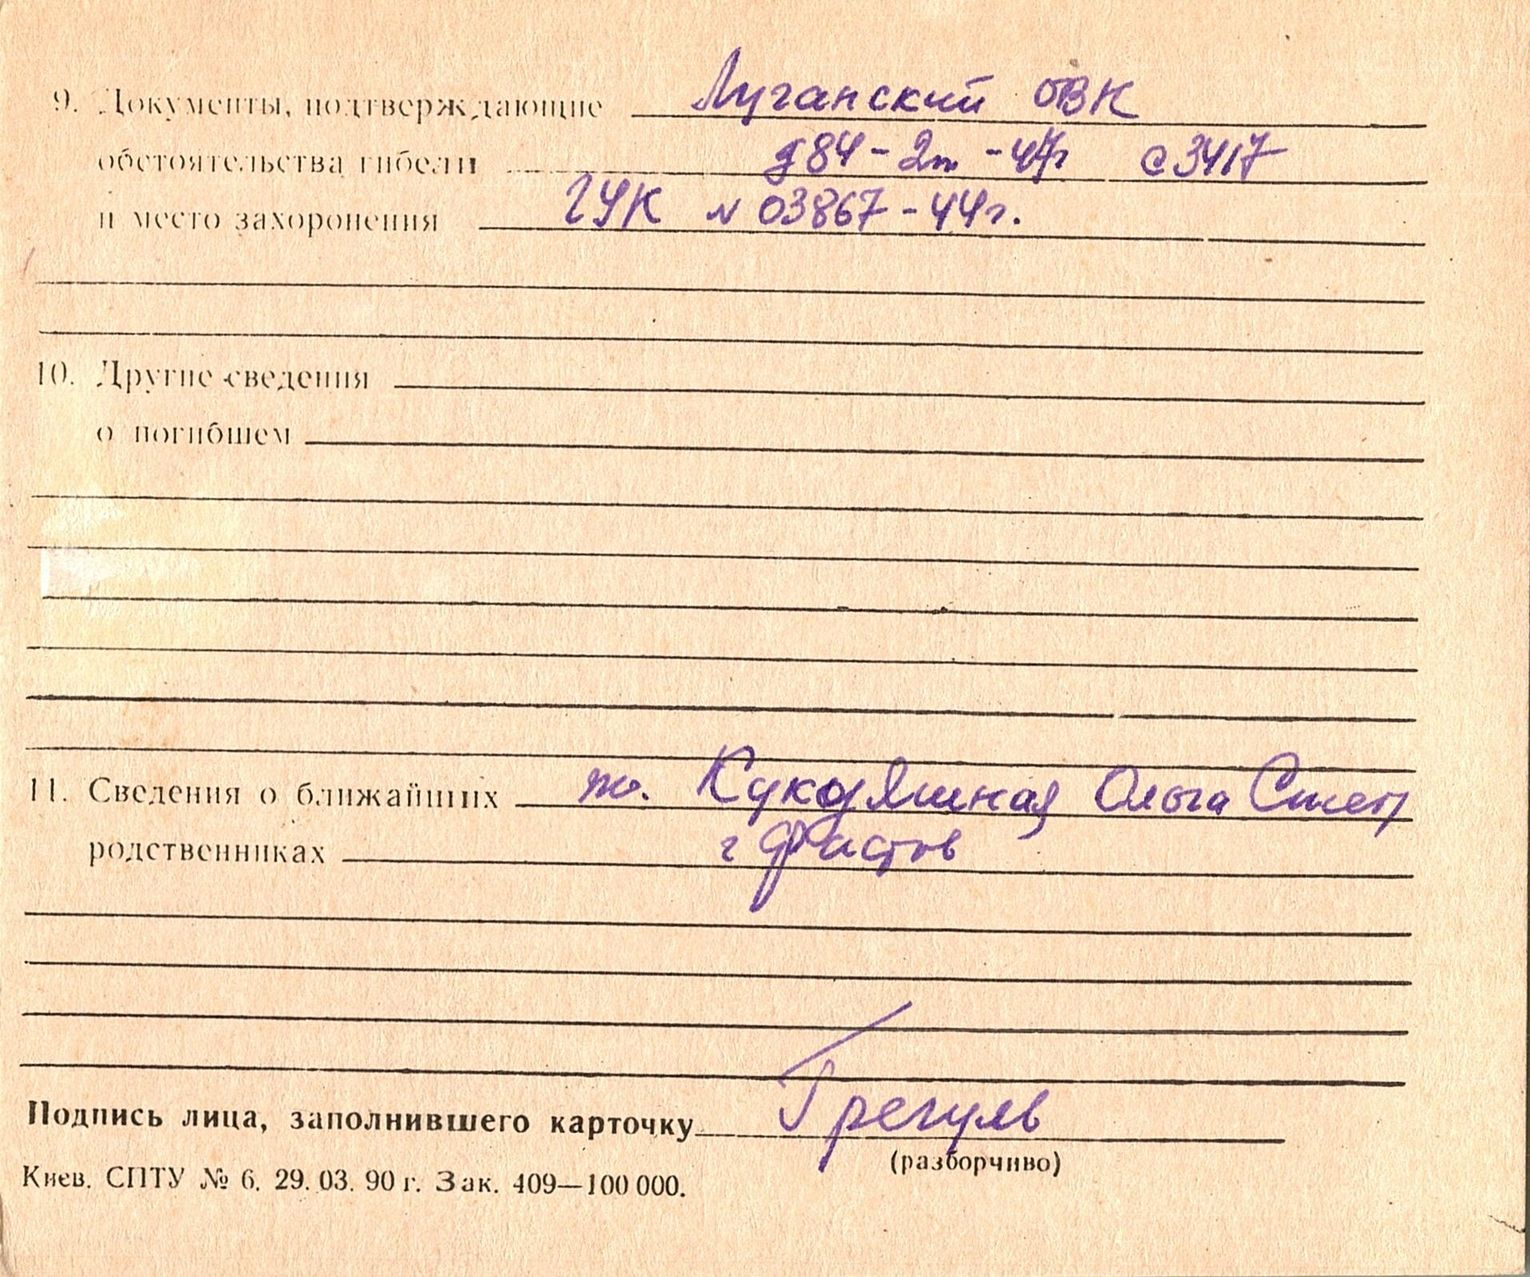 9. Документы, подтверждающие Луганский ОВК
обстоятельства гибели д84-2т-47г с3417
и место захоронения ГУК № 03867-44г.
10. Другие сведения
о погибшем
11. Сведения о ближайших ж. Ольга Степ
родственниках г Фастов
Подпись лица, заполнившего карточку Грегуль
(разборчиво)
Киев. СПТУ № 6. 29. 03. 90 г. Зак. 409—100 000.